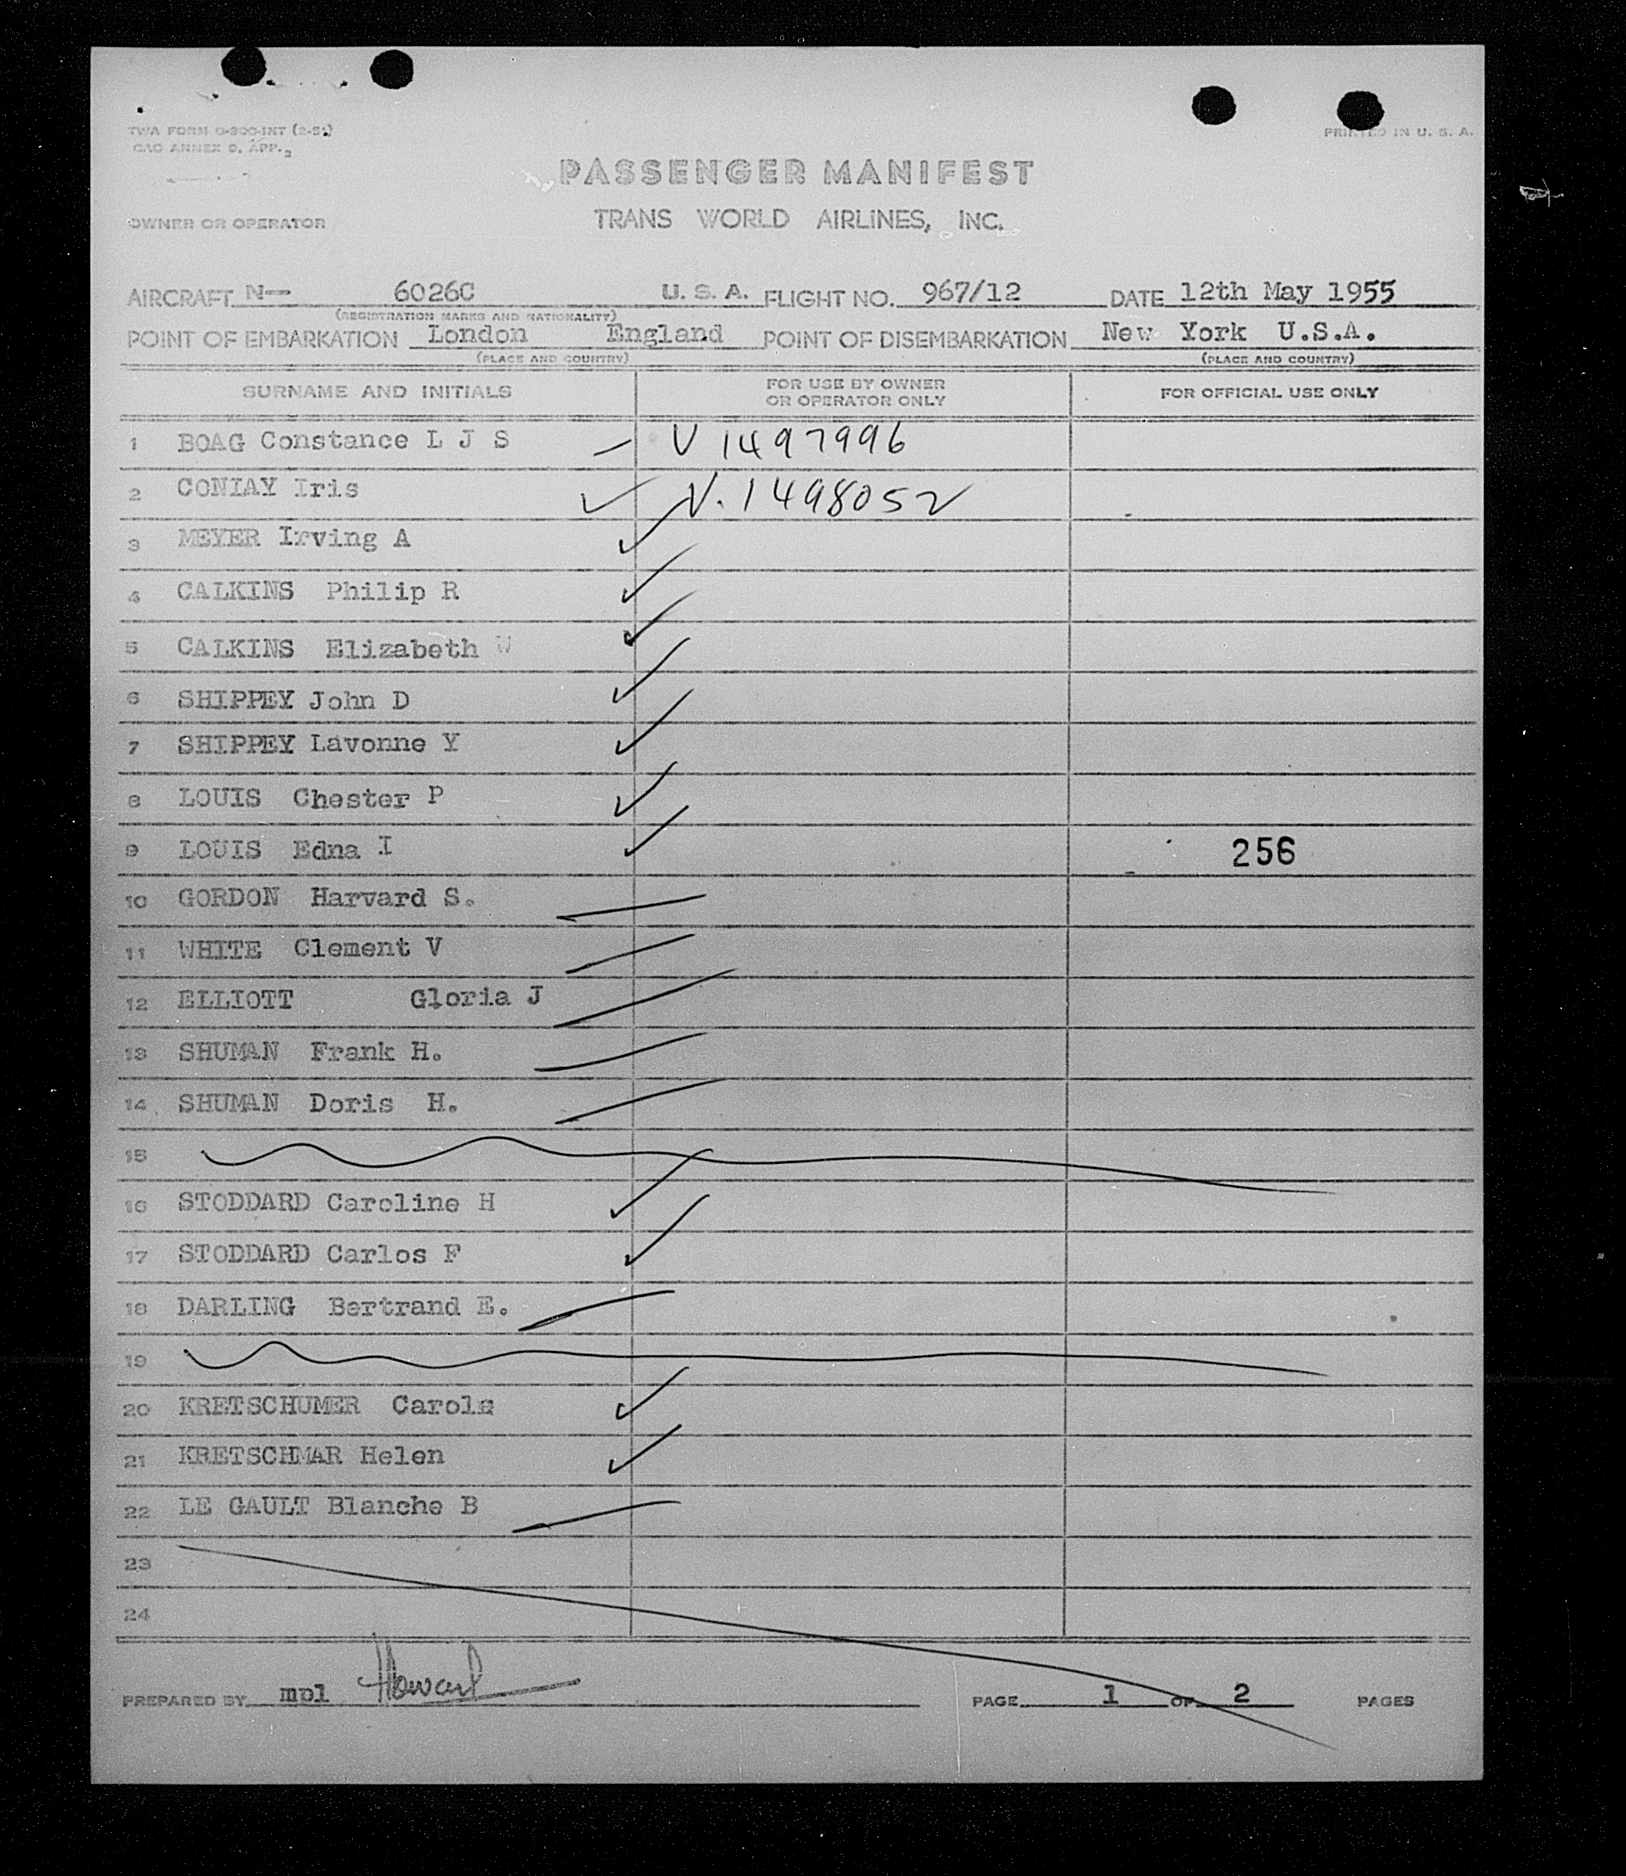 TWA FORM O-300-INT (2-51)
PRINTED IN U. S. A.
CAO ANNEX 9, APP. 2
PASSENGER MANIFEST
OWNER OR OPERATOR
TRANS WORLD AIRLINES, INC.
AIRCRAFT N- 6026C U. S. A. FLIGHT NO. 967/12 DATE 12th May 1955
(REGISTRATION MARKS AND NATIONALITY)
POINT OF EMBARKATION London England POINT OF DISEMBARKATION New York U.S.A.
(PLACE AND COUNTRY) (PLACE AND COUNTRY)
SURNAME AND INITIALS FOR USE BY OWNER OR OPERATOR ONLY FOR OFFICIAL USE ONLY
1 BOAG Constance L J S V 1497996
2 CONIAY Iris V. 1498052
3 MEYER Irving A
4 CALKINS Philip R
5 CALKINS Elizabeth W
6 SHIPPEY John D
7 SHIPPEY Lavonne Y
8 LOUIS Chester P
9 LOUIS Edna I 256
10 GORDON Harvard S.
11 WHITE Clement V
12 ELLIOTT Gloria J
13 SHUMAN Frank H.
14 SHUMAN Doris H.
15
16 STODDARD Caroline H
17 STODDARD Carlos F
18 DARLING Bertrand E.
19
20 KRETSCHUMER Carole
21 KRETSCHMAR Helen
22 LE GAULT Blanche B
23
24
PREPARED BY mpl Howard PAGE 1 OF 2 PAGES